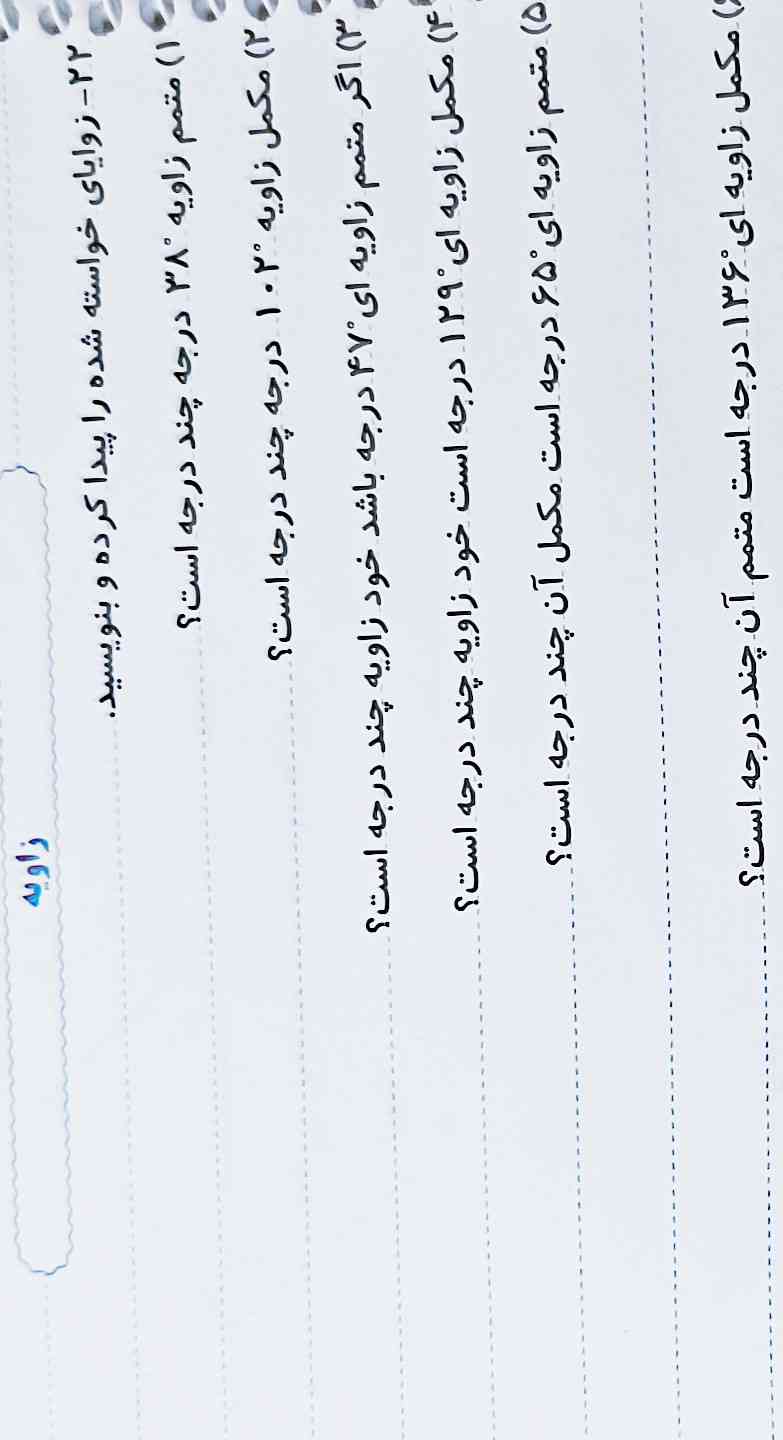 زاویه
۲۲- زوایای خواسته شده را پیدا کرده و بنویسید.
۱) متمم زاویه ۳۸° درجه چند درجه است؟
۲) مکمل زاویه ۱۰۲° درجه چند درجه است؟
۳) اگر متمم زاویه ای ۴۷° درجه باشد خود زاویه چند درجه است؟
۴) مکمل زاویه ای ۱۲۹° درجه است خود زاویه چند درجه است؟
۵) متمم زاویه ای ۶۵° درجه است مکمل آن چند درجه است؟
۶) مکمل زاویه ای ۱۳۶° درجه است متمم آن چند درجه است؟